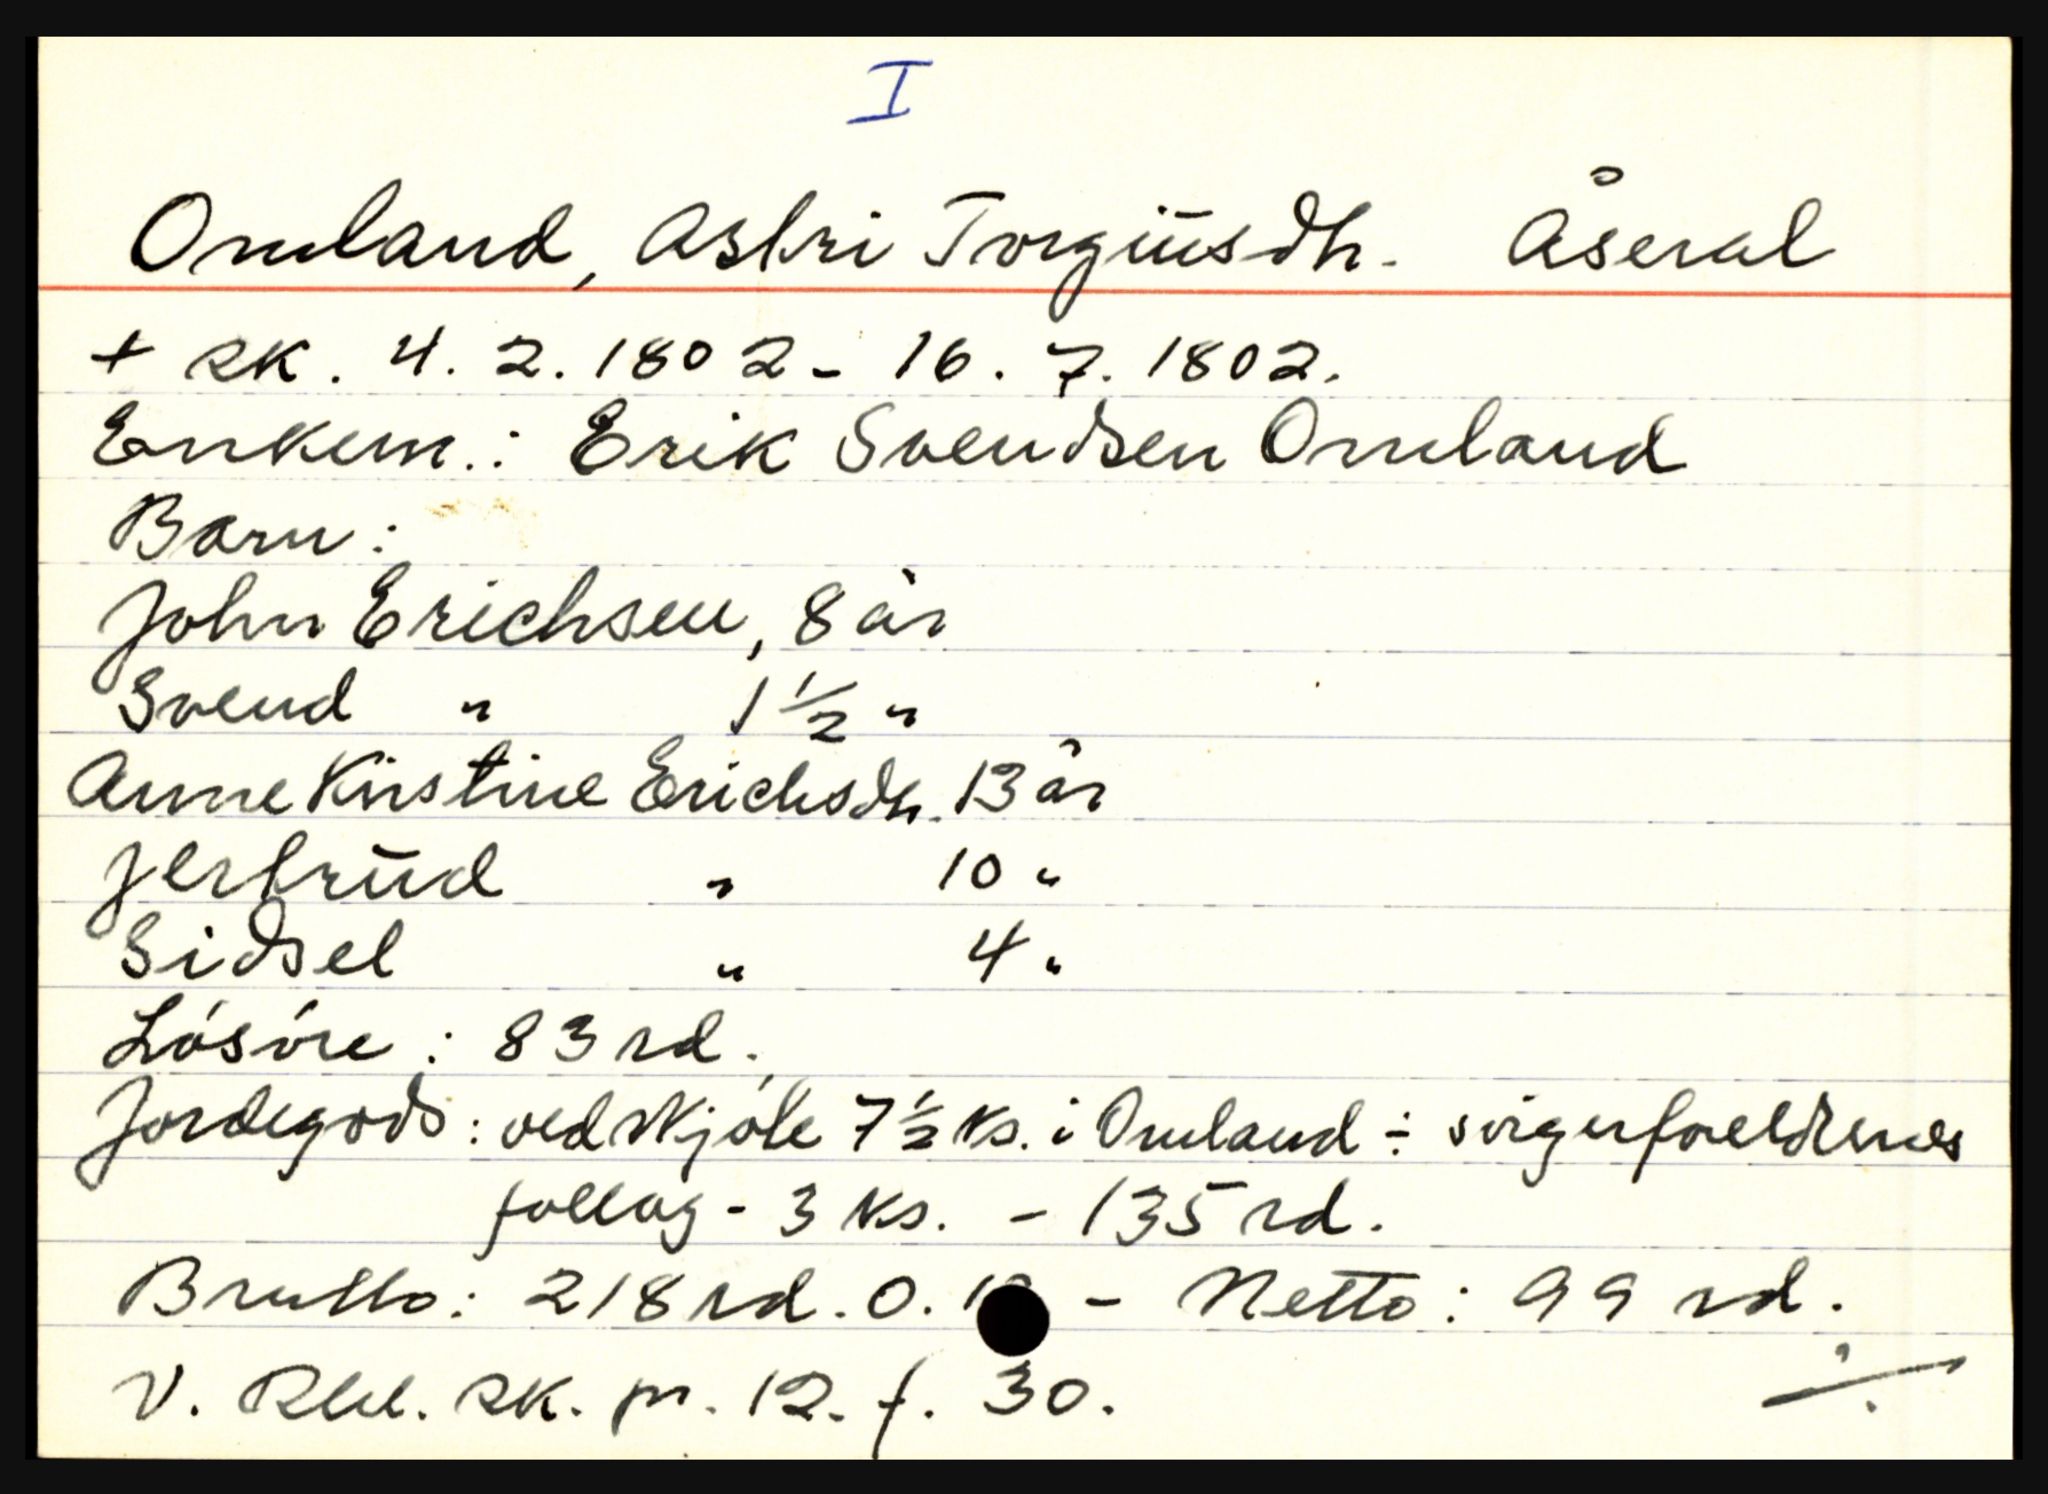 I
Omland, Astri Torgiusdtr. Åseral
+ sk. 4. 2. 1802 - 16. 7. 1802.
Enkem.: Erik Svendsen Omland
Barn:
John Erichsen, 8 år
Svend " 1 ½ "
Anne Kirstine Erichsdtr. 13 år
Jertrud " 10 "
Sidsel " 4 "
Lösöre: 83 rd.
Jordegods: ved skjöte 7 ½ ks. i Omland ÷ svigerforeldrenes
follog - 3 ks. - 135 rd.
Brutto: 218 rd. 0. - Netto: 99 rd.
V. Rbd. sk. pr. 12. f. 30.